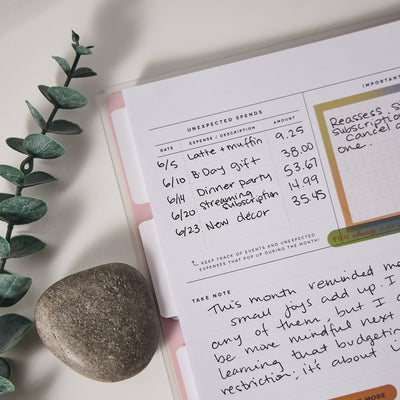 UNEXPECTED SPENDS
DATE EXPENSE / DESCRIPTION AMOUNT
6/5 Latte + muffin 9.25
6/10 B Day gift 38.00
6/14 Dinner party 53.67
6/20 Streaming subscription 14.99
6/23 New décor 35.45
KEEP TRACK OF EVENTS AND UNEXPECTED
EXPENSES THAT POP UP DURING THE MONTH!
IMPORTANT
Reassess
subscription
Cancel
one..
YOU
TAKE NOTE
This month reminded me
small joys add up. I
any of them, but I
be more mindful next
learning that budgeting
restriction; it's about
MORE